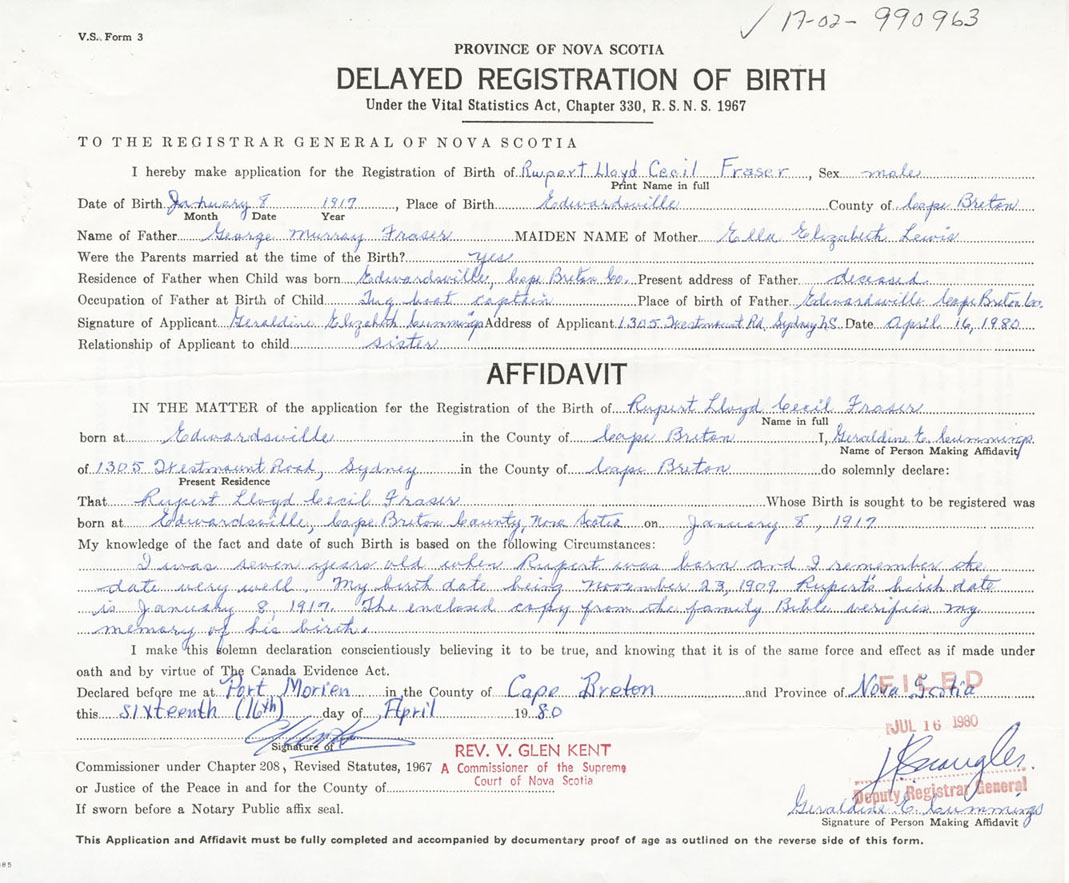 ✓ 17-02-990963
V.S. Form 3
PROVINCE OF NOVA SCOTIA
DELAYED REGISTRATION OF BIRTH
Under the Vital Statistics Act, Chapter 330, R. S. N. S. 1967
TO THE REGISTRAR GENERAL OF NOVA SCOTIA
I hereby make application for the Registration of Birth of Rupert Lloyd Cecil Fraser, Sex male
Print Name in full
Date of Birth January 8 1917, Place of Birth Edwardsville County of Cape Breton
Month Date Year
Name of Father George Murray Fraser MAIDEN NAME of Mother Ella Elizabeth Lewis
Were the Parents married at the time of the Birth? yes
Residence of Father when Child was born Edwardsville, Cape Breton Co. Present address of Father deceased.
Occupation of Father at Birth of Child Tug boat captain Place of birth of Father Edwardsville Cape Breton Co.
Signature of Applicant Geraldine Elizabeth Cummings Address of Applicant 1305 Westmount Rd, Sydney NS Date April 16, 1980
Relationship of Applicant to child sister
AFFIDAVIT
IN THE MATTER of the application for the Registration of the Birth of Rupert Lloyd Cecil Fraser
Name in full
born at Edwardsville in the County of Cape Breton I, Geraldine E. Cummings
Name of Person Making Affidavit
of 1305 Westmount Road, Sydney in the County of Cape Breton do solemnly declare:
Present Residence
That Rupert Lloyd Cecil Fraser Whose Birth is sought to be registered was
born at Edwardsville, Cape Breton County, Nova Scotia on January 8, 1917
My knowledge of the fact and date of such Birth is based on the following Circumstances:
I was seven years old when Rupert was born and I remember the
date very well. My birth date being November 23, 1909. Rupert's birth date
is January 8, 1917. The enclosed copy from the family Bible verifies my
memory of his birth.
I make this solemn declaration conscientiously believing it to be true, and knowing that it is of the same force and effect as if made under
oath and by virtue of The Canada Evidence Act.
Declared before me at Port Morien in the County of Cape Breton and Province of Nova Scotia
FILED
this sixteenth (16th) day of April 1980
JUL 16 1980
Signature of
REV. V. GLEN KENT
Commissioner under Chapter 208, Revised Statutes, 1967 A Commissioner of the Supreme
Court of Nova Scotia
or Justice of the Peace in and for the County of
Deputy Registrar General
If sworn before a Notary Public affix seal.
Geraldine E. Cummings
Signature of Person Making Affidavit
This Application and Affidavit must be fully completed and accompanied by documentary proof of age as outlined on the reverse side of this form.